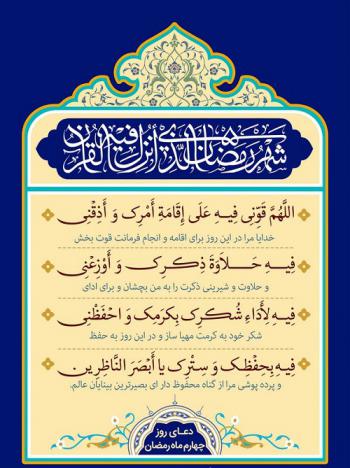 شهر رمضان الذی أنزل فیه القرآن
اللَّهُمَّ قَوِّنِی فِیهِ عَلَی إِقَامَةِ أَمْرِکَ وَ أَذِقْنِی
خدایا مرا در این روز برای اقامه و انجام فرمانت قوت بخش
فِیهِ حَلاوَةَ ذِکْرِکَ وَ أَوْزِعْنِی
و حلاوت و شیرینی ذکرت را به من بچشان و برای ادای
فِیهِ لِأَدَاءِ شُکْرِکَ بِکَرَمِکَ وَ احْفَظْنِی
شکر خود به کرمت مهیا ساز و در این روز به حفظ
فِیهِ بِحِفْظِکَ وَ سِتْرِکَ یا أَبْصَرَ النَّاظِرِینَ
و پرده پوشی مرا از گناه محفوظ دار ای بصیرترین بینایان عالم.
دعـای روز
چهارم ماه رمضان